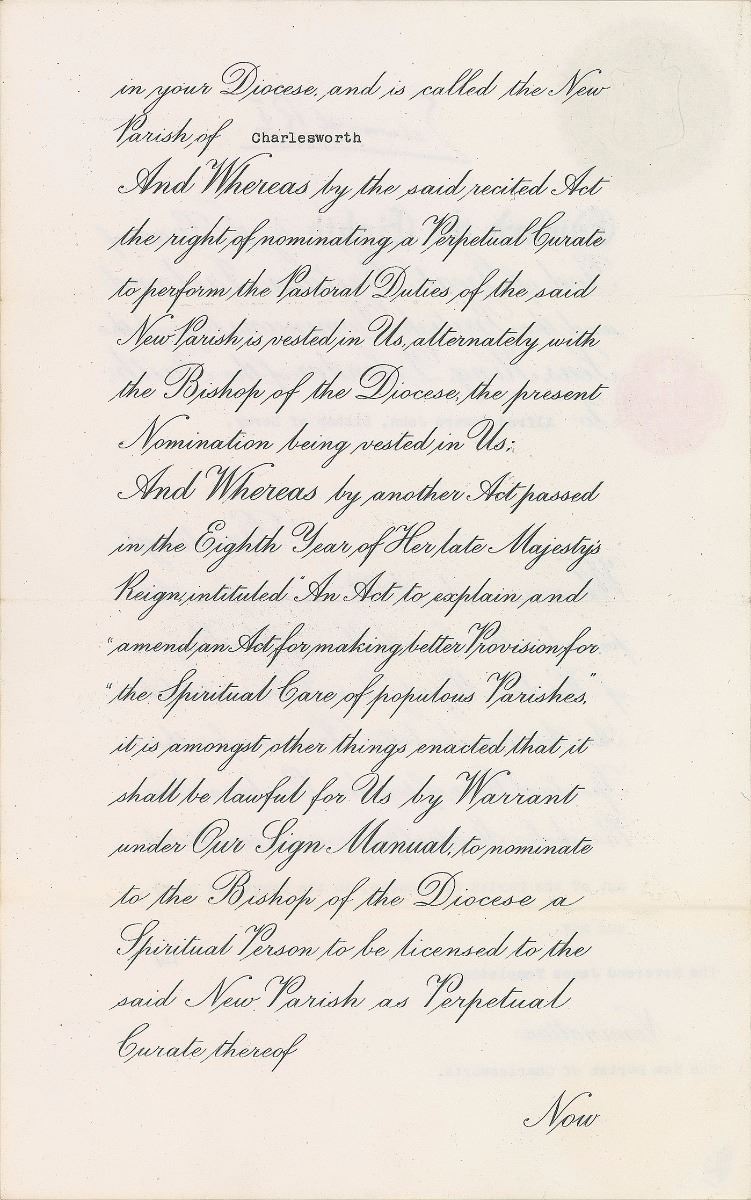 in your Diocese, and is called the New
Parish of Charlesworth
And Whereas by the said recited Act
the right of nominating a Perpetual Curate
to perform the Pastoral Duties of the said
New Parish is vested in Us, alternately with
the Bishop of the Diocese, the present
Nomination being vested in Us;
And Whereas by another Act passed
in the Eighth Year of Her late Majesty's
Reign, intituled "An Act to explain and
"amend an Act for making better Provision for
"the Spiritual Care of populous Parishes,"
it is amongst other things enacted that it
shall be lawful for Us by Warrant
under Our Sign Manual, to nominate
to the Bishop of the Diocese a
Spiritual Person to be licensed to the
said New Parish as Perpetual
Curate thereof
Now